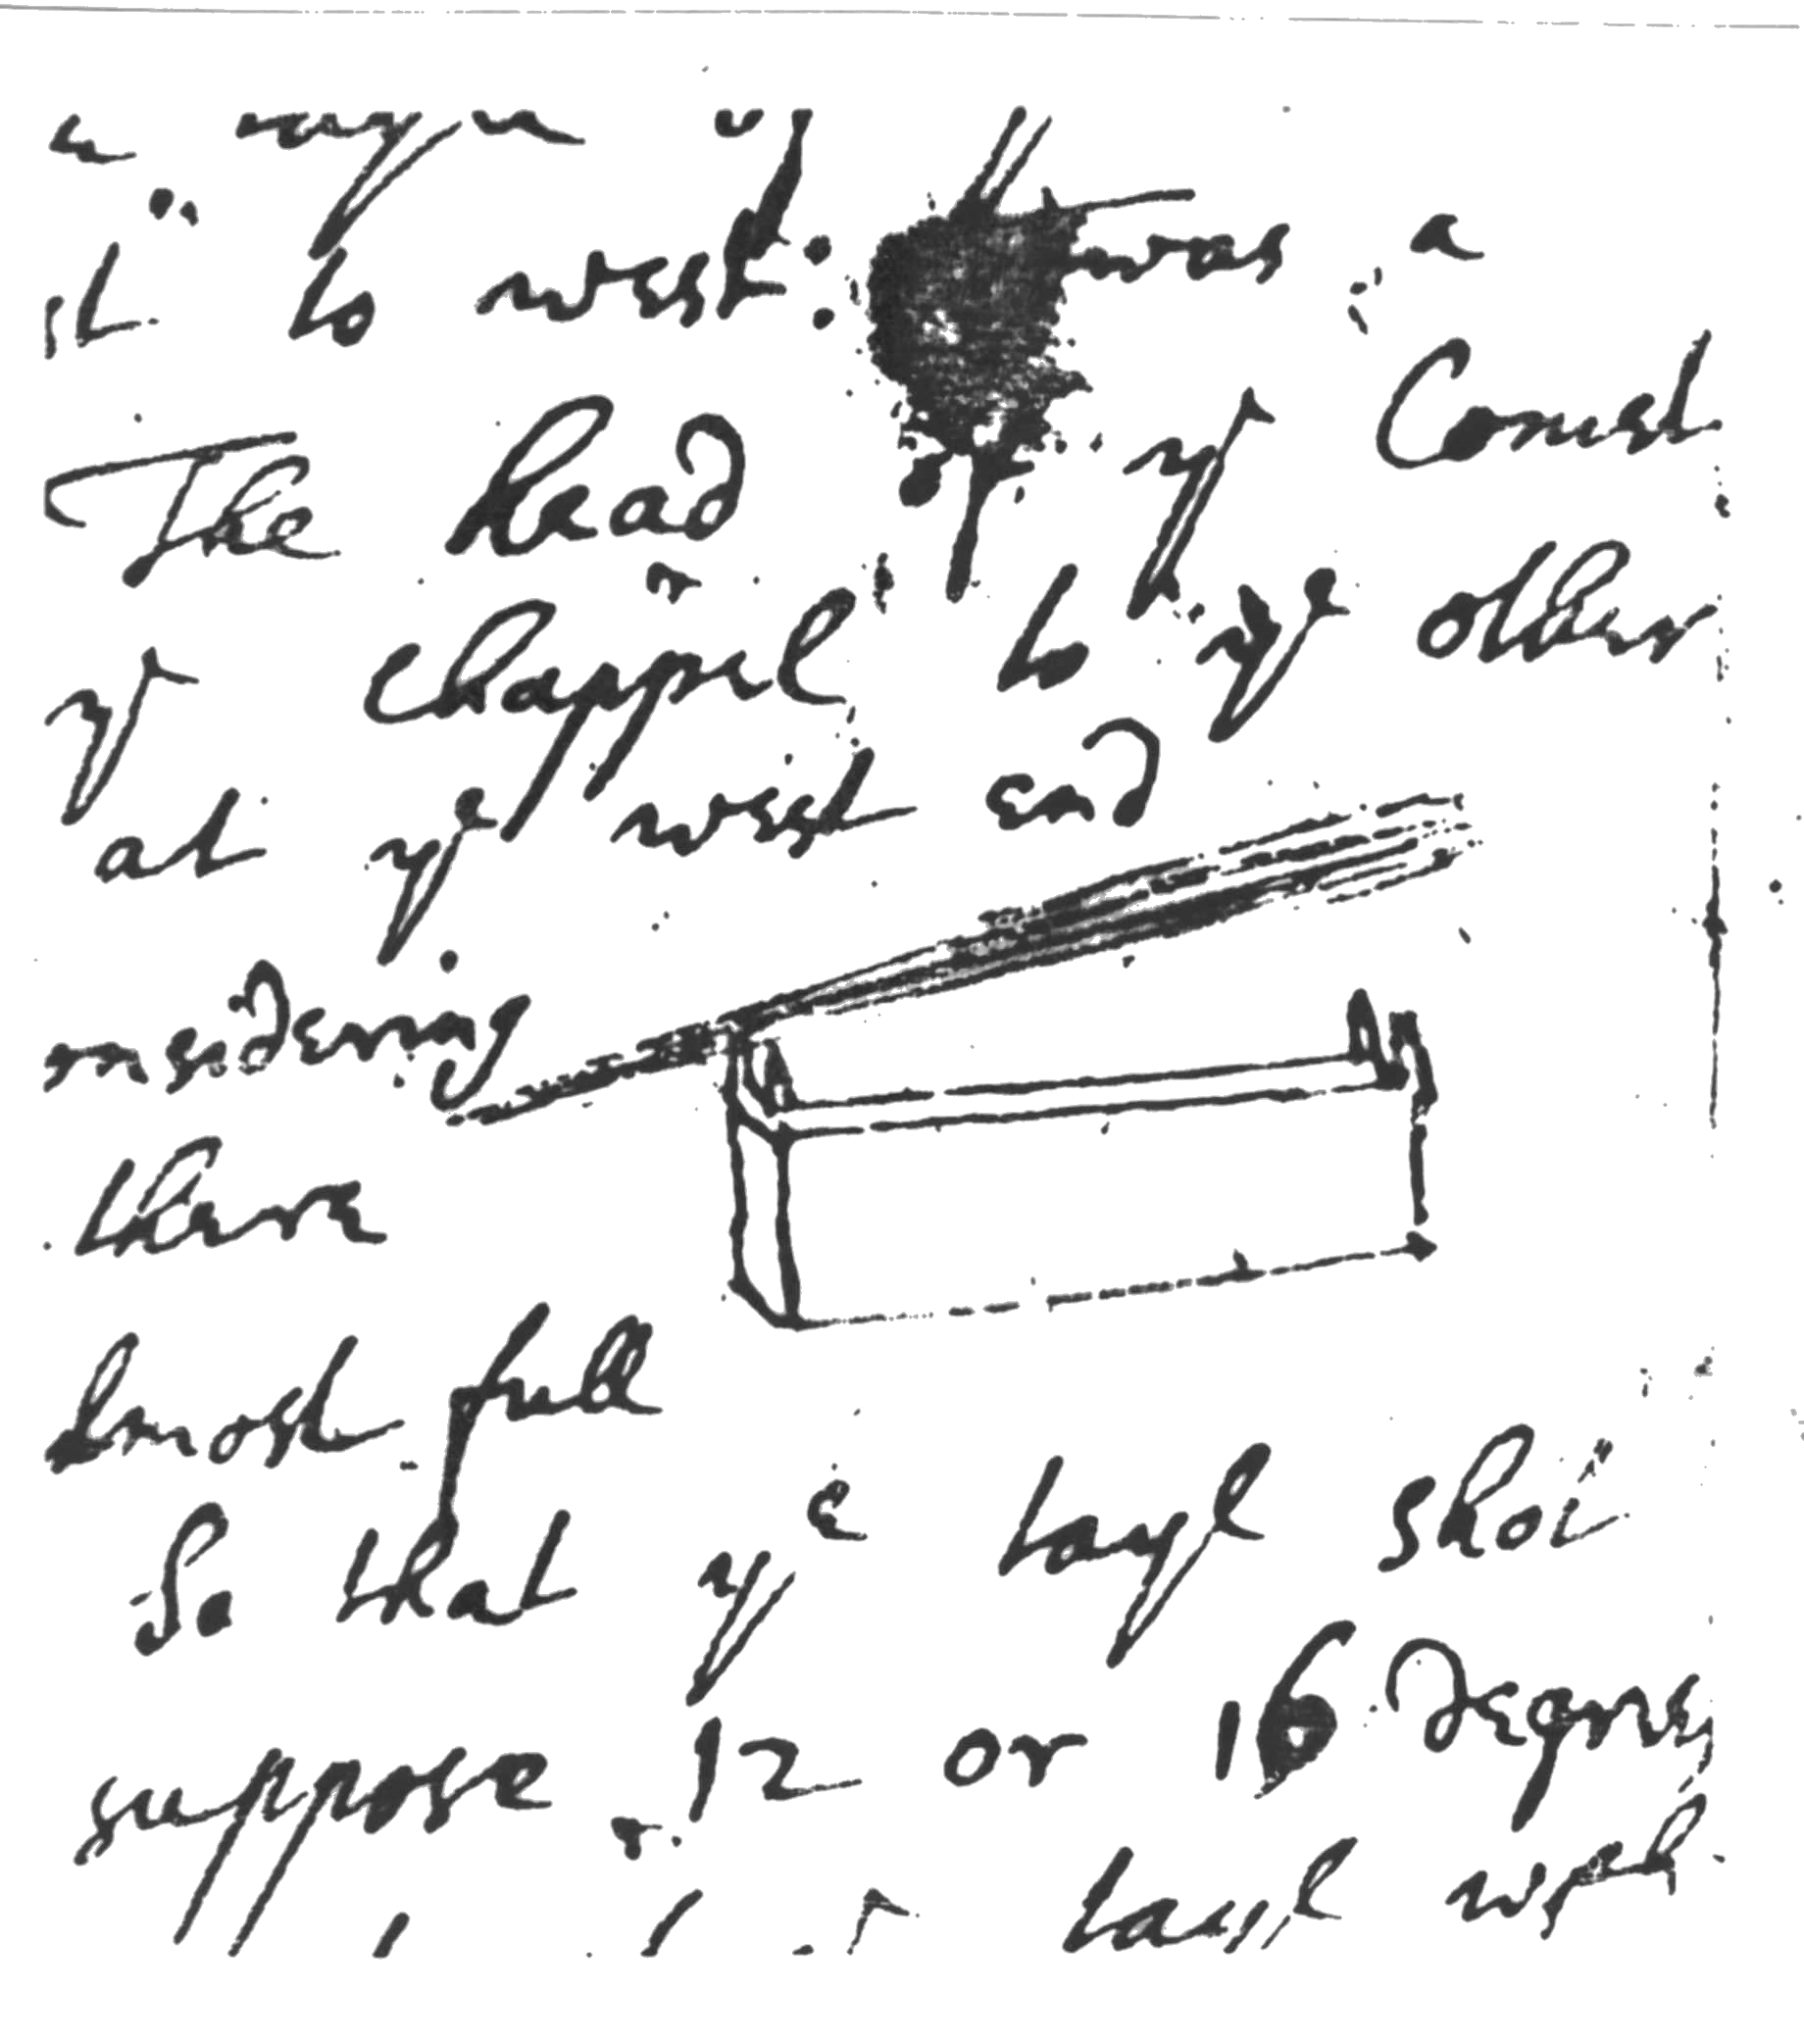 it to west: was a
The head of yͤ Comet
yͤ chappel to yͤ other
at yͤ west end
nsidering
there
lmost full
So that yͤ tayl shot
suppose 12 or 16 degrees
tayl wͨʰ